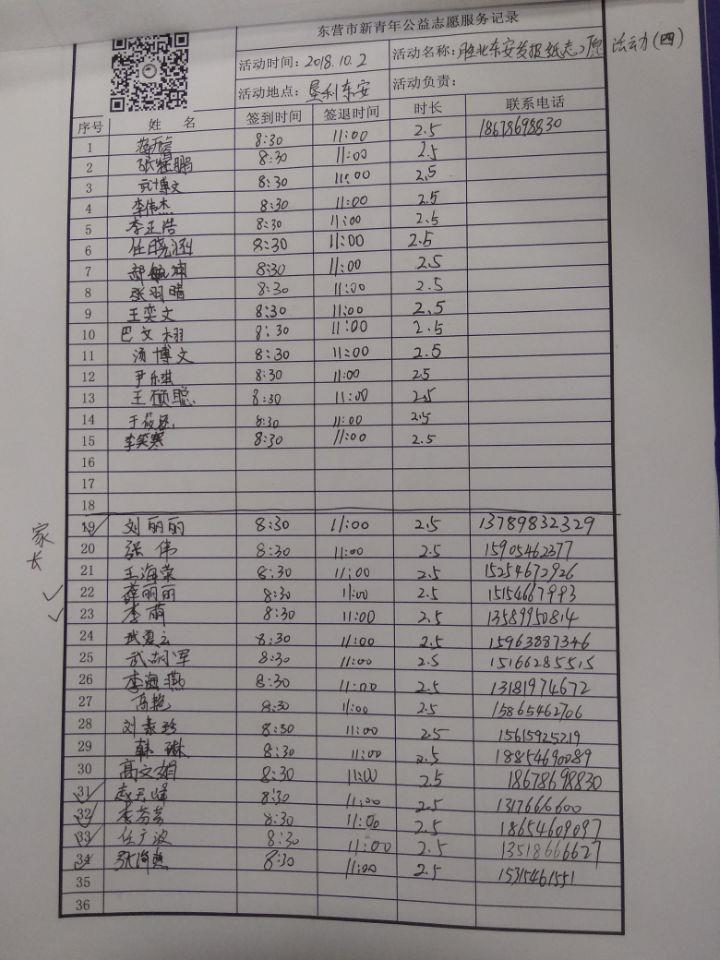 东营市新青年公益志愿服务记录
活动时间：2018.10.2 活动名称：胜北东安发报纸志愿活动(四)
活动地点：垦利东安 活动负责：
序号 姓 名 签到时间 签退时间 时长 联系电话
1 8:30 11:00 2.5 18678698830
2 张耀鹏 8:30 11:00 2.5
3 武博文 8:30 11:00 2.5
4 李伟杰 8:30 11:00 2.5
5 李正浩 8:30 11:00 2.5
6 任晓涵 8:30 11:00 2.5
7 郝毓冲 8:30 11:00 2.5
8 张羽晴 8:30 11:00 2.5
9 王奕文 8:30 11:00 2.5
10 巴文栩 8:30 11:00 2.5
11 汤博文 8:30 11:00 2.5
12 尹乐琪 8:30 11:00 2.5
13 王硕聪 8:30 11:00 2.5
14 8:30 11:00 2.5
15 李笑寒 8:30 11:00 2.5
16
17
18
家长
19 刘丽丽 8:30 11:00 2.5 13789832329
20 张伟 8:30 11:00 2.5 15905462377
21 王海荣 8:30 11:00 2.5 15254672926
22 薛丽丽 8:30 11:00 2.5 15154667993
23 李萌 8:30 11:00 2.5 13589950814
24 武爱云 8:30 11:00 2.5 15963887346
25 武胡军 8:30 11:00 2.5 15166285515
26 李海燕 8:30 11:00 2.5 13181974672
27 高艳 8:30 11:00 2.5 15865462706
28 刘素珍 8:30 11:00 2.5 15615925219
29 韩琳 8:30 11:00 2.5 18854690089
30 高文娟 8:30 11:00 2.5 18678698830
31 赵天峰 8:30 11:00 2.5 1317666600
32 李芬芳 8:30 11:00 2.5 18654609097
33 任广波 8:30 11:00 2.5 13518666627
34 张海燕 8:30 11:00 2.5 15315461551
35
36